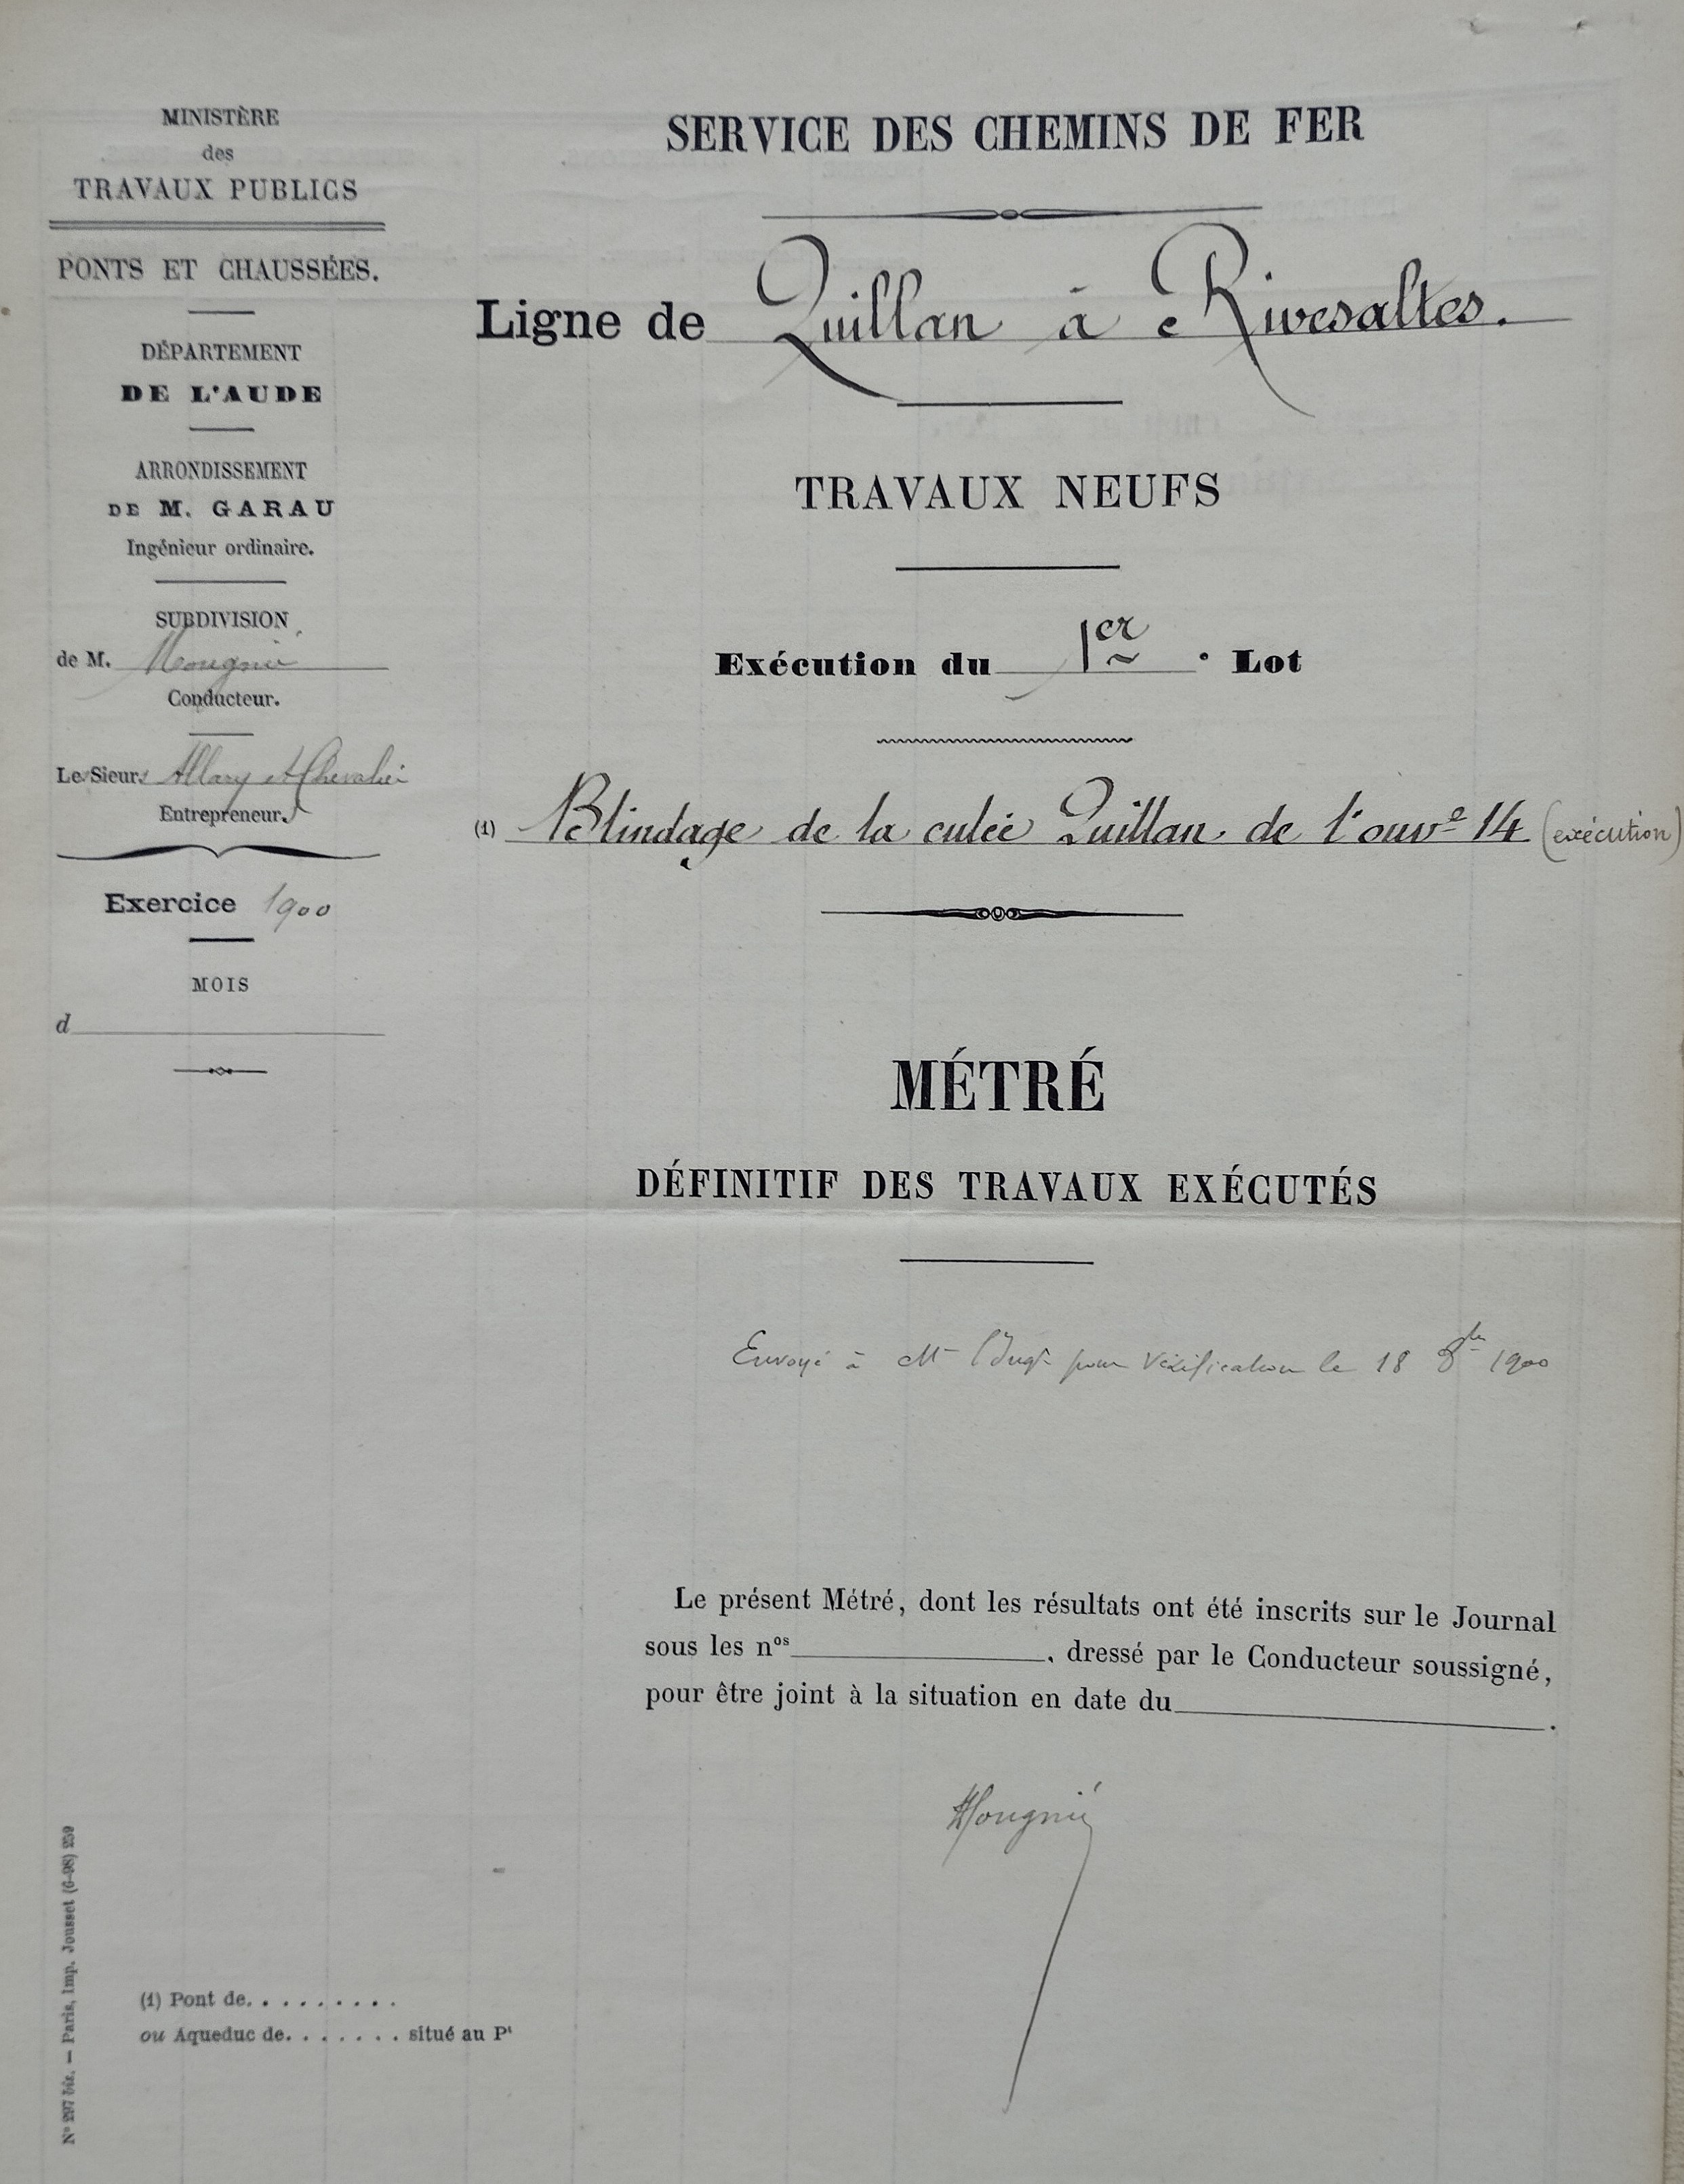 MINISTÈRE
des
TRAVAUX PUBLICS
PONTS ET CHAUSSÉES.
DÉPARTEMENT
DE L'AUDE
ARRONDISSEMENT
DE M. GARAU
Ingénieur ordinaire.
SUBDIVISION
de M. Mougnié
Conducteur.
Les Sieurs Allary et Chevalier
Entrepreneurs
Exercice 1900
MOIS
d
SERVICE DES CHEMINS DE FER
Ligne de Quillan à Rivesaltes.
TRAVAUX NEUFS
Exécution du 1er Lot
(1) Blindage de la culée Quillan de l'ouve 14 (exécution)
MÉTRÉ
DÉFINITIF DES TRAVAUX EXÉCUTÉS
Envoyé à Mr l'Ingr pour vérification le 18 8bre 1900
Le présent Métré, dont les résultats ont été inscrits sur le Journal
sous les nos , dressé par le Conducteur soussigné,
pour être joint à la situation en date du .
Mougnié
(1) Pont de. . . . . . . . .
ou Aqueduc de. . . . . . . situé au Pt
No 297 bis. — Paris, Imp. Jousset (6-98) 259